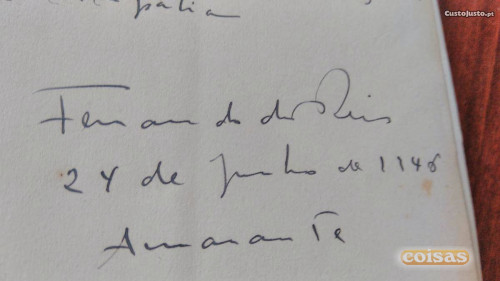 CustoJusto.pt
Fernando dos Reis
24 de Junho de 1946
Amarante
coisas